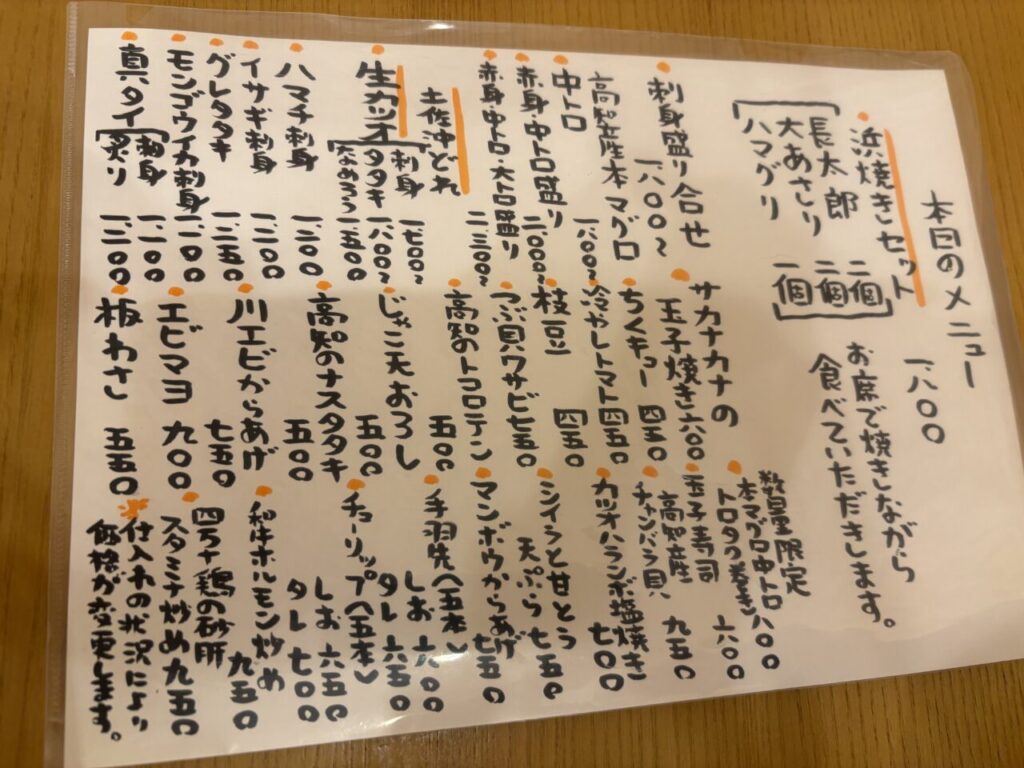 本日のメニュー
浜焼きセット 一.八〇〇
長太郎 二個
大あさり 二個
ハマグリ 一個
お席で焼きながら
食べていただきします。
刺身盛り合せ
一.八〇〇~
高知産本マグロ
中トロ 一.八〇〇~
赤身・中トロ盛り 二.〇〇〇~
赤身・中トロ・大トロ盛り 二.三〇〇~
土佐沖どれ
生カツオ
刺身 一.七〇〇~
タタキ 一.八〇〇~
なめろう 一.五〇〇
ハマチ刺身 一.三〇〇
イサギ刺身 一.二〇〇
グレタタキ 一.二五〇
モンゴウイカ刺身 一.一〇〇
真ダイ
刺身 一.一〇〇
炙り 一.二〇〇
サカナカナの
玉子焼き 六〇〇
ちくキュー 四五〇
冷やしトマト 四五〇
枝豆 四五〇
つぶ貝ワサビ 七五〇
高知のトコロテン
五〇〇
じゃこ天おろし
五〇〇
高知のナスタタキ
五〇〇
川エビからあげ
七五〇
エビマヨ 九〇〇
板わさ 五五〇
数量限定
本マグロ中トロ 八〇〇
トロタク巻キ
玉子寿司 六〇〇
高知産
チャンバラ貝 九五〇
カツオハランボ塩焼き
七〇〇
シイラと甘とう
天ぷら 七五〇
マンボウからあげ
七五〇
手羽先(五本)
しお 六〇〇
タレ 六五〇
チューリップ(五本)
しお 六五〇
タレ 七〇〇
和牛ホルモン炒め
九五〇
四万十鶏の砂肝
スタミナ炒め 九五〇
仕入れの状況により
価格が変更します。